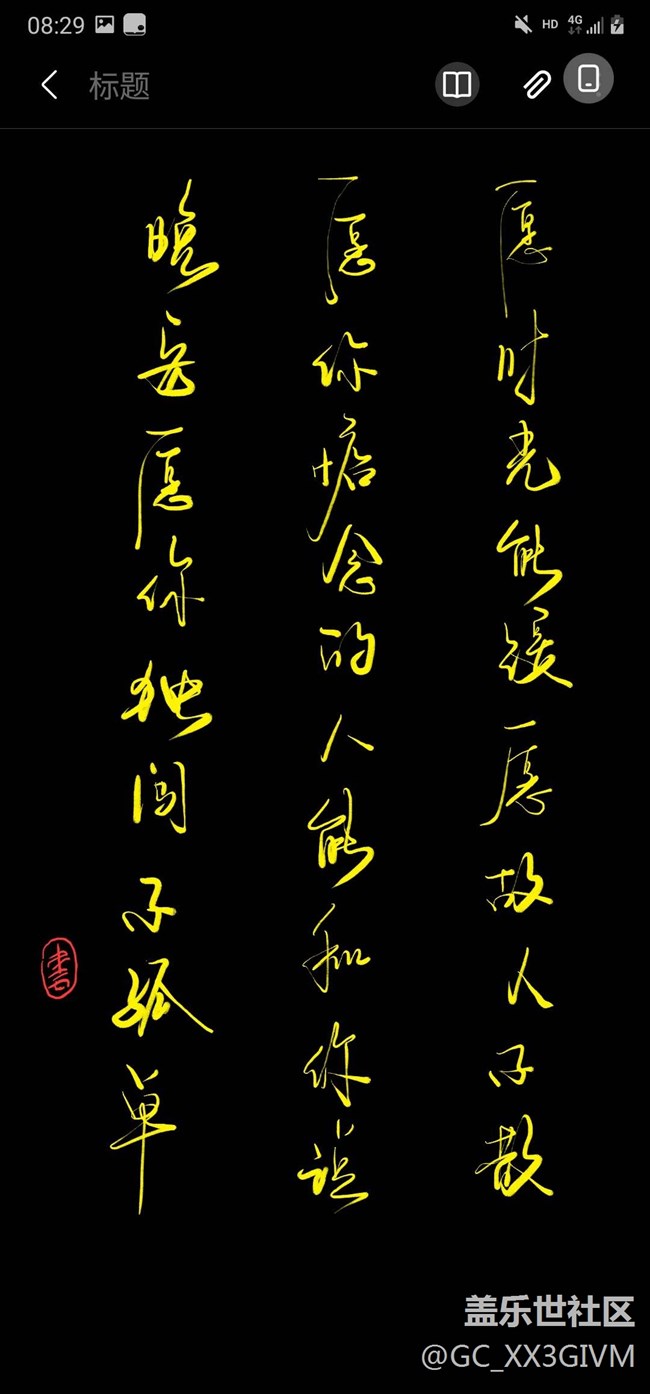 08:29
HD 4G
标题
愿时光能缓愿故人不散
愿你惦念的人能和你道
晚安愿你独闯不孤单
書
盖乐世社区
@GC_XX3GIVM